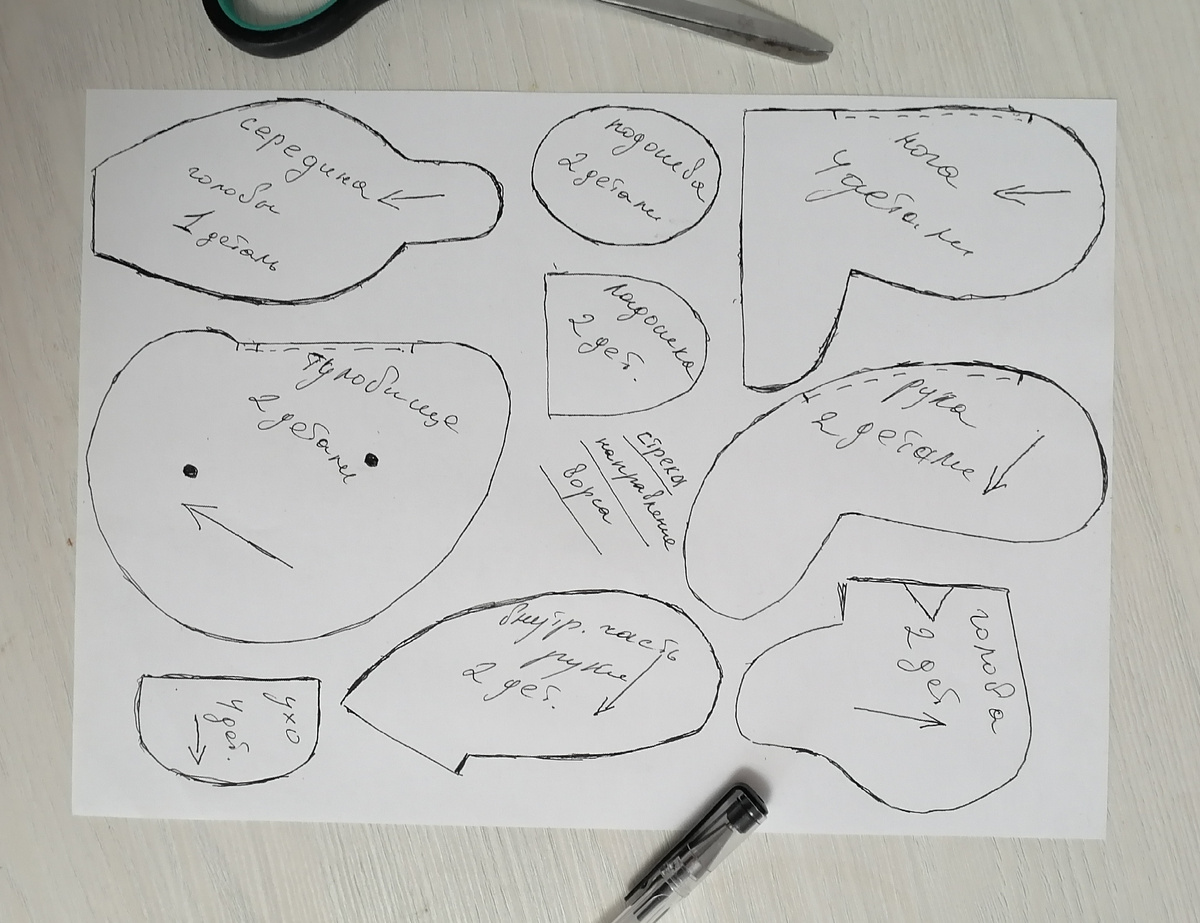 середина
головы
1 деталь
подошва
2 детали
нога
4 детали
ладошка
2 дет.
туловище
2 детали
рука
2 детали
стрека
направление
ворса
внутр. часть
руки
2 дет.
голова
2 дет
ухо
4 дет.